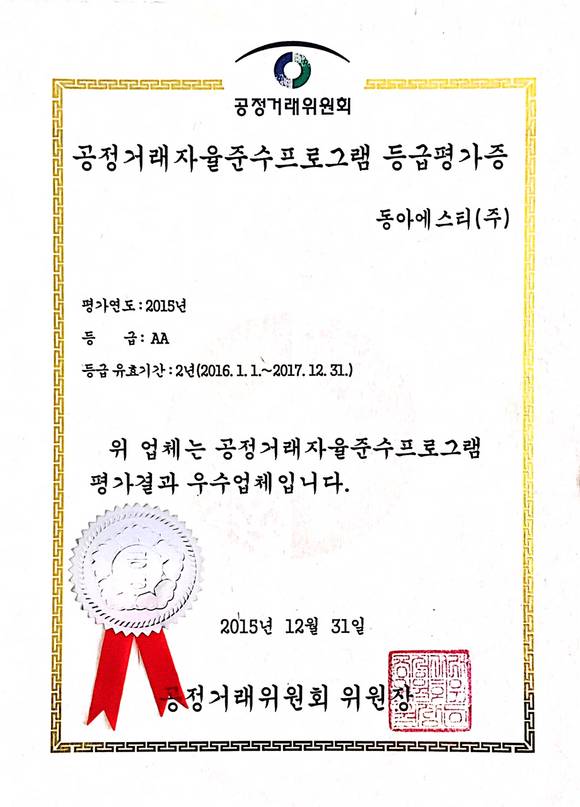 공정거래위원회
공정거래자율준수프로그램 등급평가증
동아에스티(주)
평가연도:2015년
등 급: AA
등급 유효기간:2년(2016. 1. 1.~2017. 12. 31.)
위 업체는 공정거래자율준수프로그램
평가결과 우수업체입니다.
2015년 12월 31일
공정거래위원회 위원장